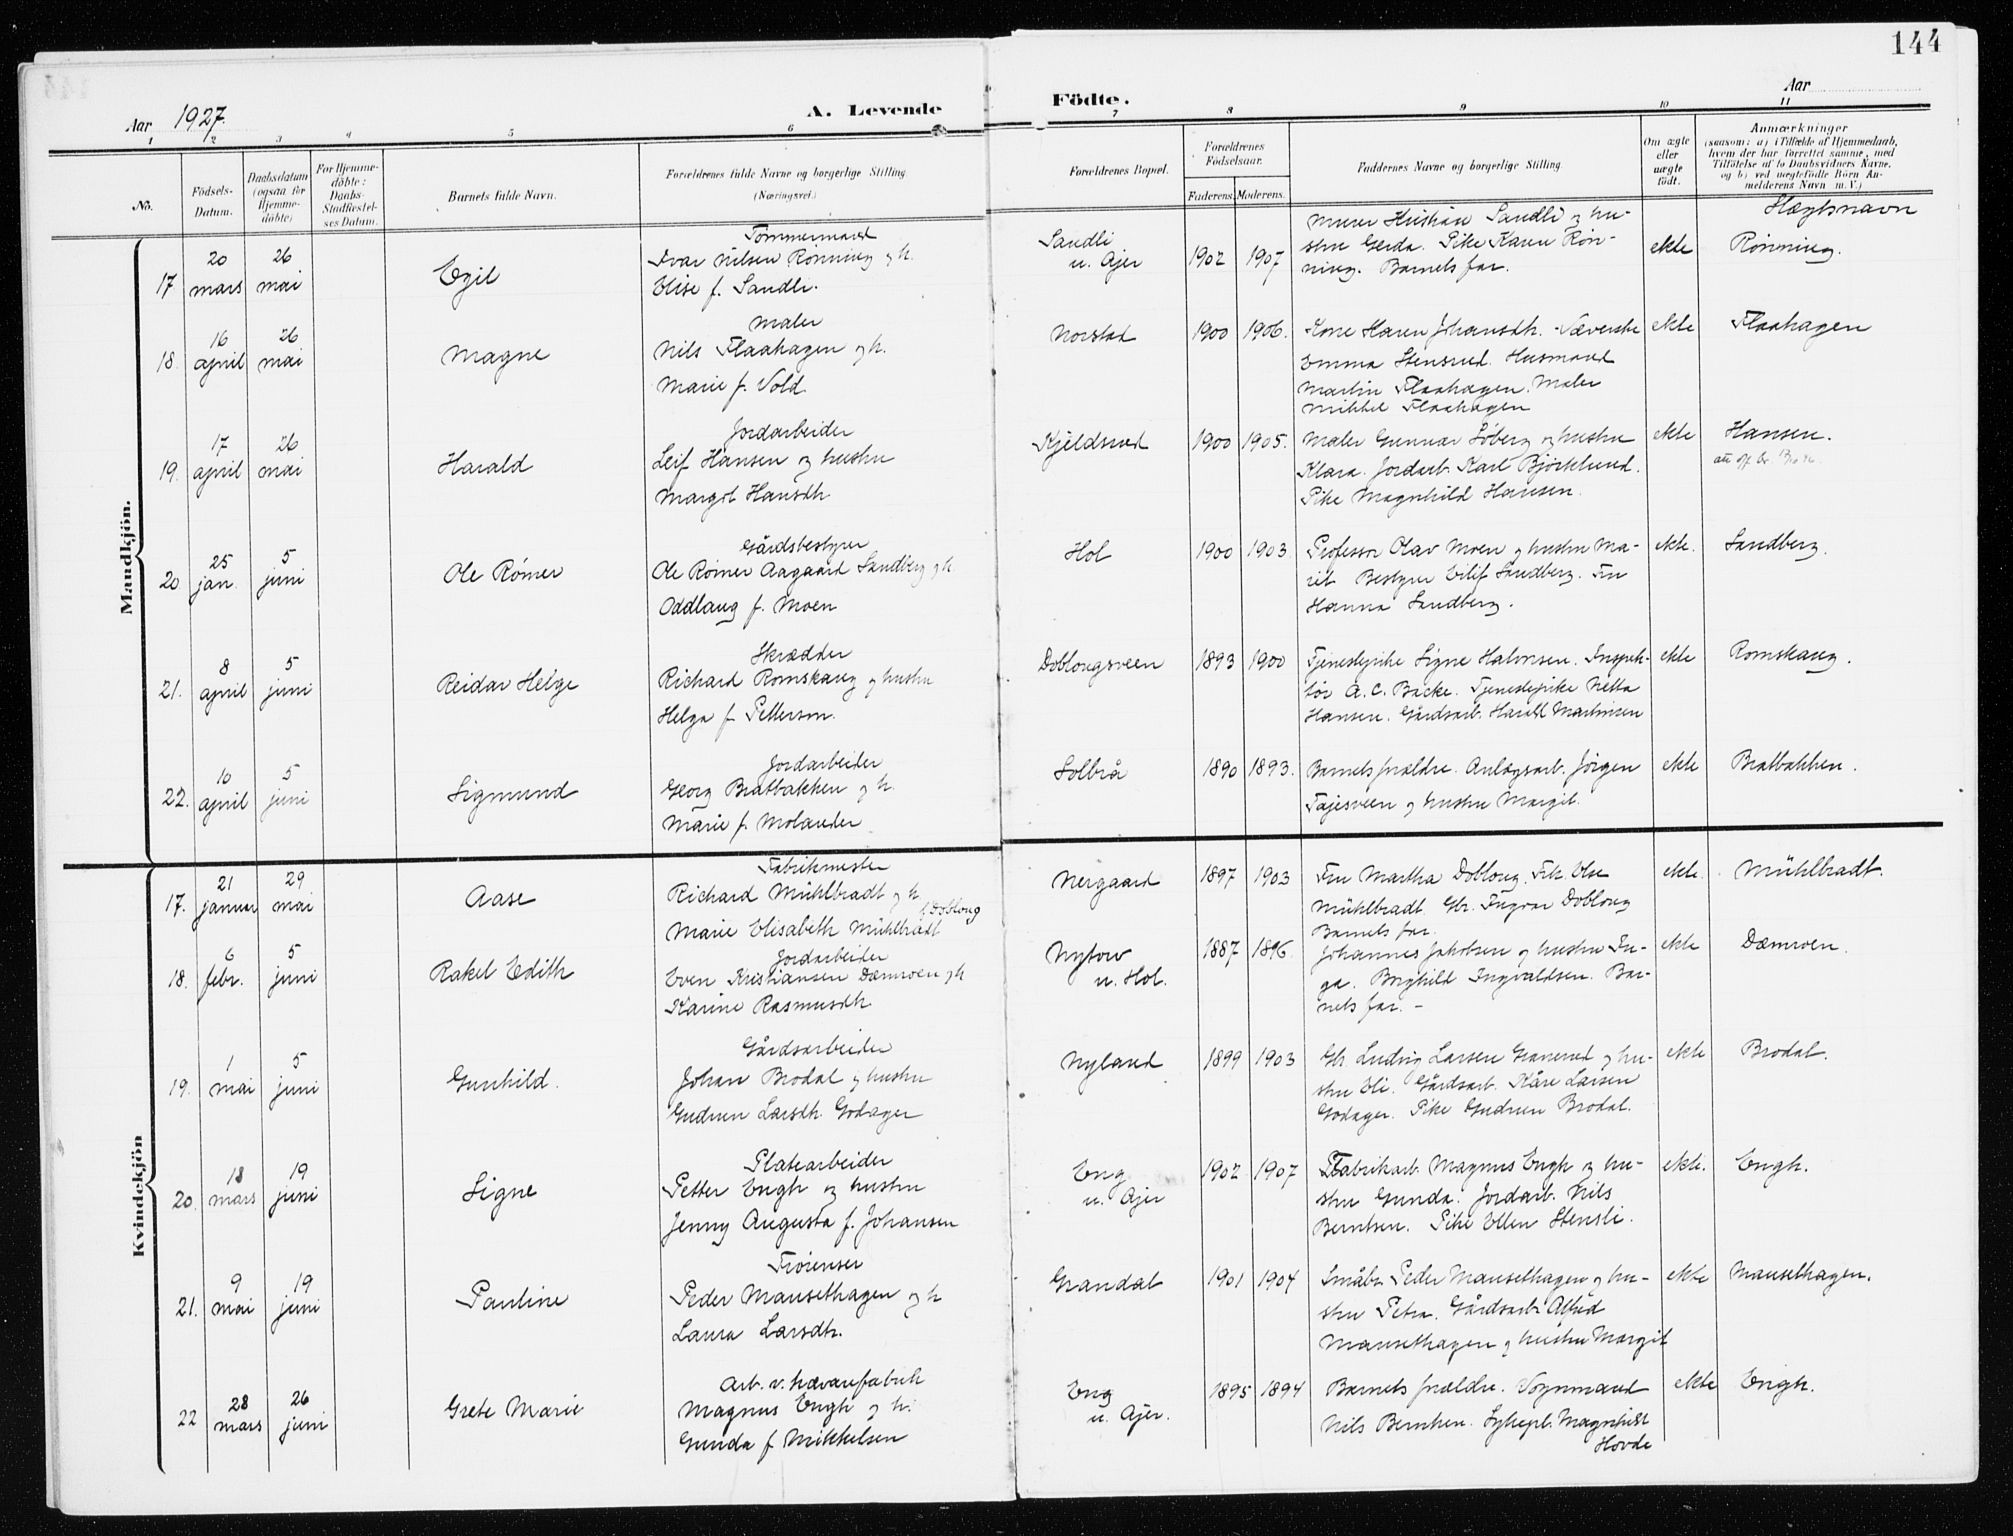 144
Aar 1927.
A. Levende Födte.
Aar
1 2 3 4 5 6 7 8 9 10 11
No.
Födsels-Datum.
Daabsdatum (ogsaa for Hjemme-döbte)
For Hjemme-döbte: Daabs-Stadfæstelses Datum.
Barnets fulde Navn.
Forældrenes fulde Navne og borgerlige Stilling
(Næringsvei.)
Forældrenes Bopæl.
Forældrenes Födselsaar.
Faderens. Moderens.
Faddernes Navne og borgerlige Stilling.
Om ægte eller uægte födt.
Anmærkninger
(saasom: a) i Tilfælde af Hjemmedaab, hvem der har forrettet samme, med Tilföielse af to Daabsvidners Navne, og b) ved uægtefödte Börn Anmelderens Navn m. V.)
Mandkjön.
Slægtsnavn
17 20 mars 26 mai
Egil
Tømmermand
Ivar Nilsen Rønning og h.
Elise f. Sandli.
Sandli
u. Ajer
1902 1907
Murer Sandli og hu-
stru Gerda. Pike Karen Røn-
ning. Barnets far.
ekte
Rønning.
18. 16 april 26 mai
Magne
Maler
Nils Flaahagen og h.
Marie f. Vold.
Norstad
1900 1906.
Kone Karen Johansdtr. Væverske
Emma Stensrud. Husmand
Martin Flaahagen. Maler
Mikkel Flaahagen
ekte
Flaahagen
19. 17 april 26 mai
Harald
Jordarbeider
Leif Hansen og hustru
Margot Hansdtr.
Kjeldsrud
1900 1905.
Maler Gunnar Søberg og hustru
Klara. Jordarb. Karl Bjørklund.
Pike Magnhild Hansen.
ekte
Hansen.
20 25 jan. 5 juni
Ole Rømer
Gårdsbestyrer
Ole Rømer Aagaard Sandberg og h.
Oddlaug f. Moen
Hol
1900 1903.
Professor Olav Moen og hustru Ma-
rit Bestyrer Eilif Sandberg. Fru
Hanna Sandberg.
ekte.
Sandberg.
21. 8 april 5 juni
Reidar Helge
Skrædder
Richard Romskaug og hustru
Helga f. Petterson.
Doblougsveen
1893 1900
Tjenestepike Signe Halvorsen. Inspek-
tør A. C. Backe. Tjenestepike Netta
Hansen. Gårdsarb. Harald Martinsen
ekte
Romskaug.
22. 10 april 5 juni
Sigmund
Jordarbeider
Georg Bratbakken og h.
Marie f. Molander
Solbrå
1890 1893.
Barnets forældre. Anlægsarb. Jørgen
Tajesveen og hustru Margit.
ekte
Bratbakken.
Kvindekjön
17. 21 januar 29 mai
Aase
Fabrikmester
Richard Mühlbradt og h.
Marie Elisabeth Mühlbradt f. Dobloug
Nergaard
1897 1903
Fru Martha Dobloug. Frk. Else
Mühlbradt. Gbr. Ingvar Dobloug
Barnets far.
ekte.
Mühlbradt.
18. 6 febr. 5 juni
Rakel Edith
Jordarbeider
Even Kristiansen Dæmroen og h
Karine Rasmusdtr
Nytow
u. Hol.
1887 1896.
Johannes Jakobsen og hustru In-
ga. Borghild Ingvaldsen. Bar-
nets far. -
ekte
Dæmroen.
19. 1 mai 5 juni
Gunhild.
Gårdsarbeider
Johan Brodal og hustru
Gudrun Larsdtr. Godager
Nyland
1899 1903
Gbr. Ludvig Larsen Granerud og hu-
stru Eli. Gårdsarb. Kåre Larsen
Godager. Pike Gudrun Brodal.
ekte
Brodal.
20. 18 mars 19 juni
Signe
Platearbeider
Petter Engh og hustru
Jenny Augusta f. Johansen
Eng
u. Ajer
1902 1907
Fabrikarb. Magnus Engh og hu-
stru Gunda. Jordarb. Nils
Berntsen. Pike Ellen Stensli.
ekte.
Engh.
21. 9 mai 19 juni
Pauline
Peder Mansethagen og h
Laura Larsdtr.
Grandal
1901 1904
Småbr. Peder Mansethagen og hu-
stru Petra. Gårdsarb. Alfred
Mansethagen og hustru Margit
ekte
Mansethagen.
22 28 mars 26 juni
Grete Marie
Arb. v. trævarefabrik
Magnus Engh og h.
Gunda f. Mikkelsen
Eng
u. Ajer.
1895 1894
Barnets forældre. Vognmand
Nils Berntsen. Sykepl. Magnhild
Hovde
ekte
Engh.